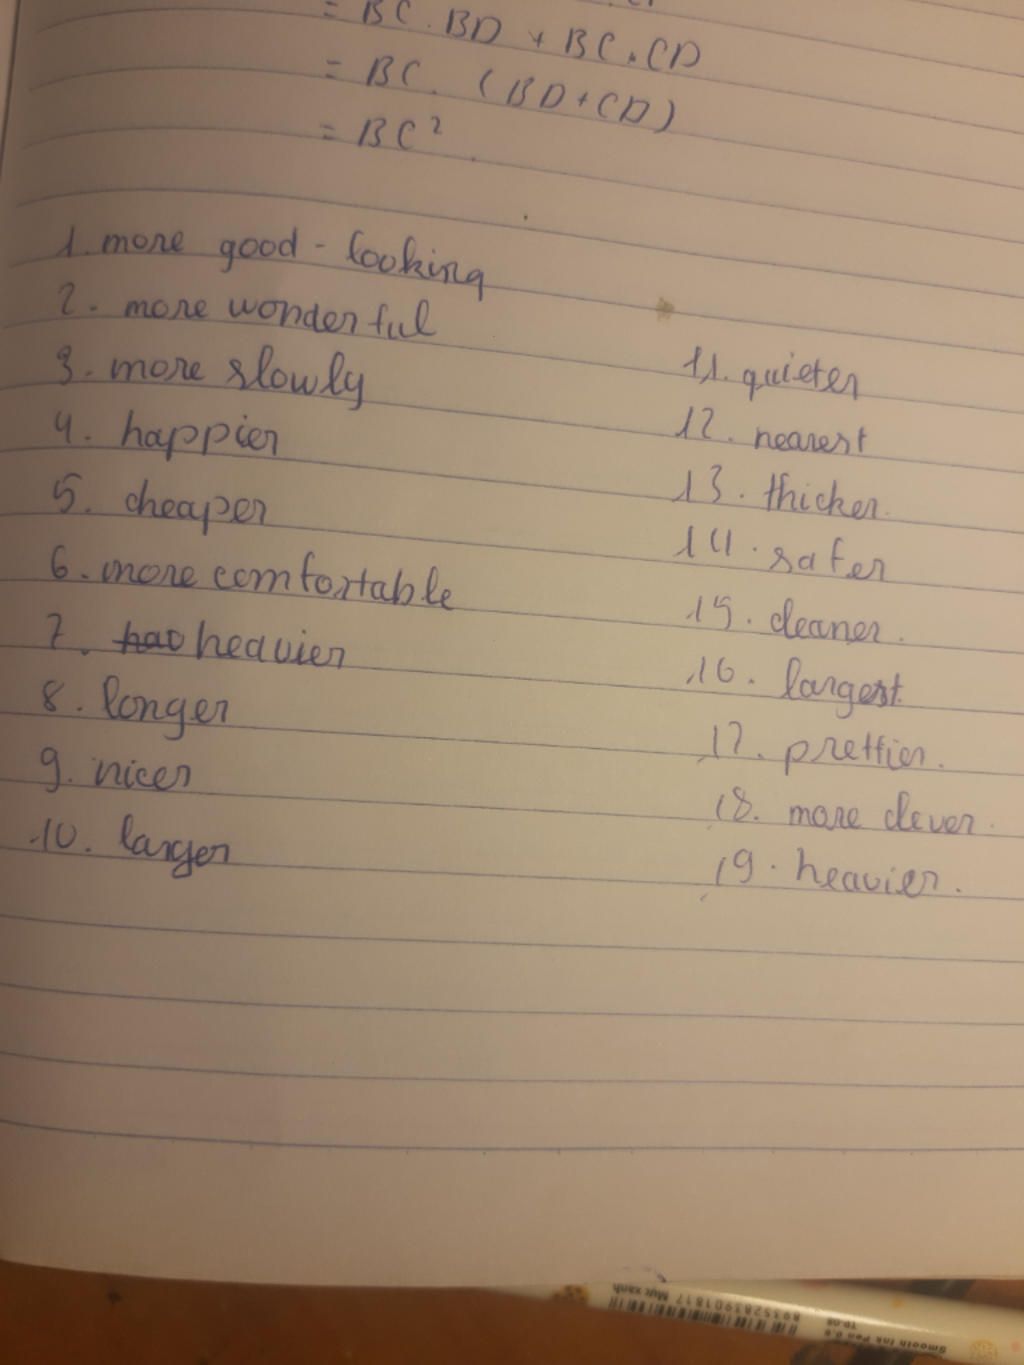 = BC . BD + BC . CD
= BC . (BD + CD)
= BC²
1. more good - looking
2. more wonderful
3. more slowly
4. happier
5. cheaper
6. more comfortable
7. heavier
8. longer
9. nicer
10. larger
11. quieter
12. nearest
13. thicker.
14. safer
15. cleaner.
16. largest.
17. prettier.
18. more clever.
19. heavier.
8935283901817 Mực xanh
TP-08
Smooth Ink Pen 0.5